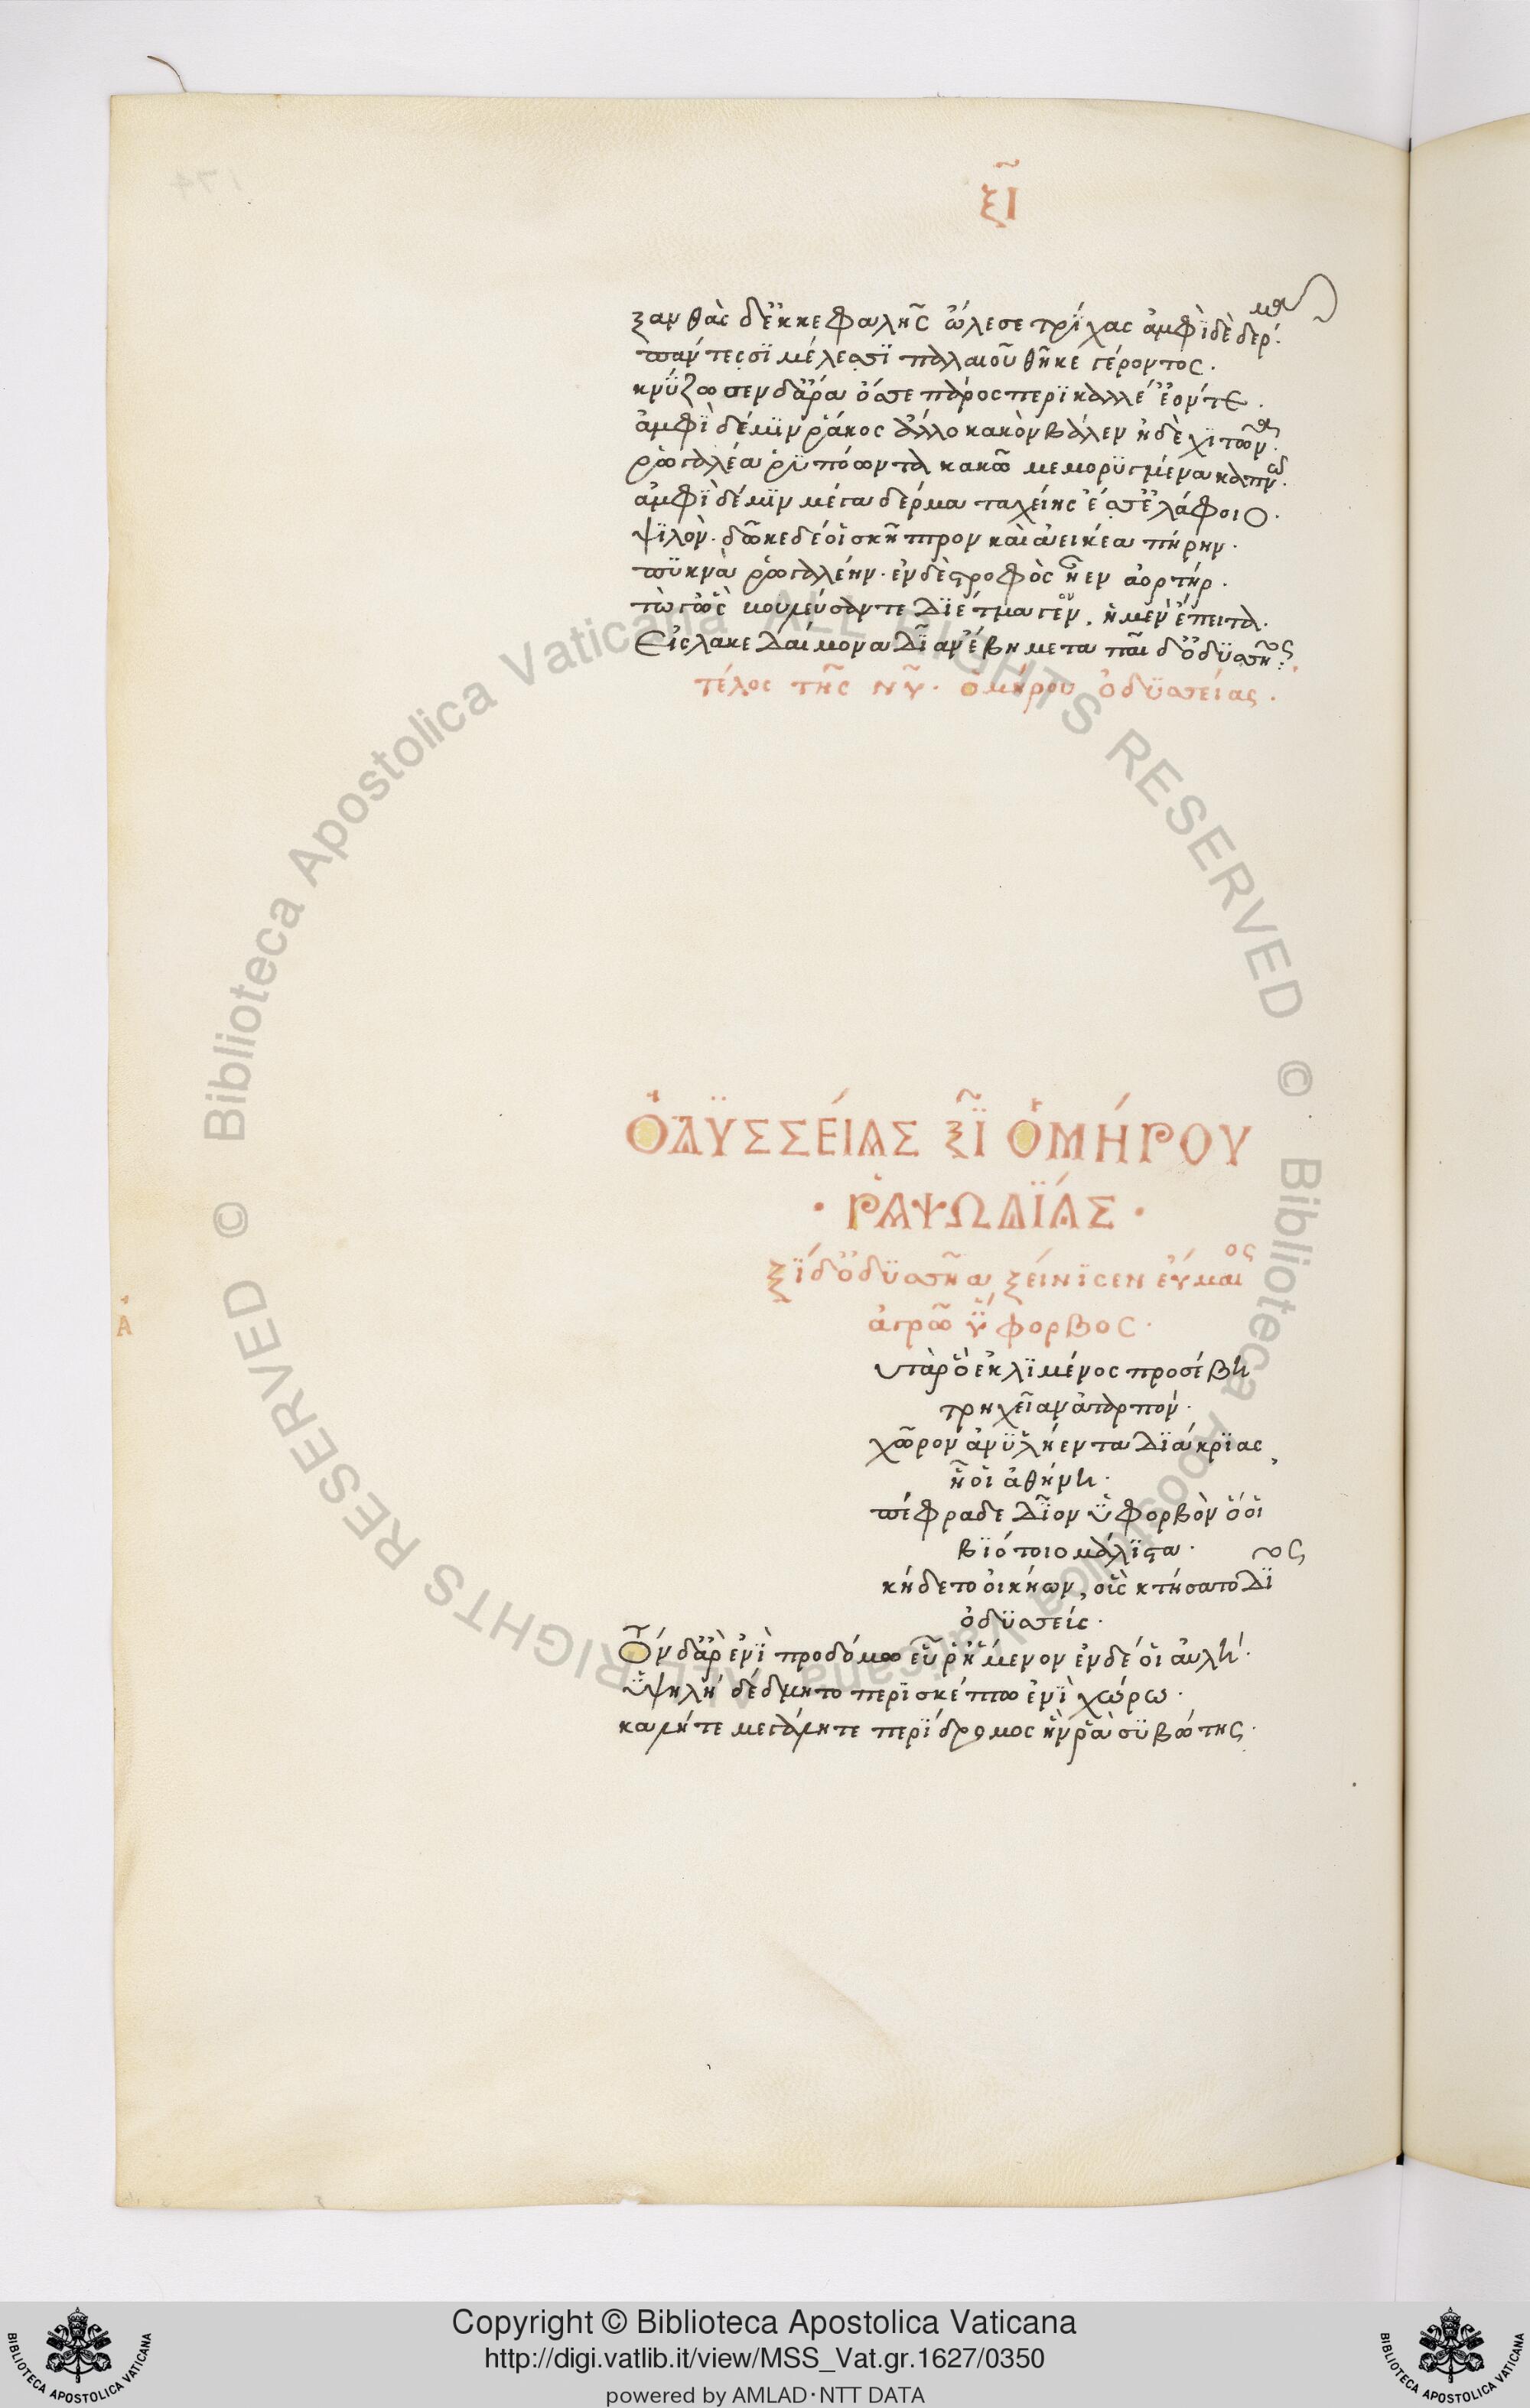 174
ξῖ
ξανθὰς δ' ἐκ κεφαλῆς ὤλεσε τρίχας ἀμφὶ δὲ δέρμα
πάντεσσι μέλεσσι παλαιοῦ θῆκε γέροντος.
κνύζωσεν δ' ἄρα ὄσσε πάρος περικαλλέ' ἐόντε.
ἀμφὶ δέ μιν ῥάκος ἄλλο κακὸν βάλεν ἠδὲ χιτῶνα.
ῥωγαλέα ῥυπόωντα κακῶ μεμορυγμένα καπνῶ.
ἀμφὶ δέ μιν μέγα δέρμα ταχείης ἕσσ' ἐλάφοιο.
ψιλόν. δῶκε δέ οἱ σκῆπτρον καὶ ἀεικέα πήρην.
πυκνὰ ῥωγαλέην. ἐν δὲ στρόφος ἦεν ἀορτήρ.
τώ γ' ὣς βουλεύσαντε διέτμαγεν. ἡ μὲν ἔπειτα.
Εἰς λακεδαίμονα δῖαν ἔβη μετὰ παῖδ' ὀδυσσῆος:
τέλος τῆς νῦ. ὁμήρου ὀδυσσείας.
ὈΔΥΣΣΕΊΑΣ ξῖ ὉΜΉΡΟΥ
· ῬΑΨΩΔΊΑΣ ·
ξῖ δ' ὀδυσσῆα ξείνισεν εὔμαιος
ἀγρῶ ὑφορβός.
Ἀ
υτὰρ ὁ ἐκ λιμένος προσέβη
τρηχεῖαν ἀταρπόν.
χῶρον ἀν' ὑλήεντα δι' ἄκριας,
ἧ οἱ ἀθήνη.
πέφραδε δῖον ὑφορβὸν ὅ οἱ
βιότοιο μάλιστα.
κήδετο οἰκήων, οὓς κτήσατο δῖος
ὀδυσσεύς.
Τὸν δ' ἄρ' ἐνὶ προδόμω εὗρ' ἥμενον ἔνδέ οἱ αὐλή.
ὑψηλὴ δέδμητο περισκέπτω ἐνὶ χώρω.
καλή τε μεγάλη τε περίδρομος ἥν ῥα συβώτης.
© Biblioteca Apostolica Vaticana ALL RIGHTS RESERVED © Biblioteca Apostolica Vaticana ALL RIGHTS RESERVED
Copyright © Biblioteca Apostolica Vaticana
http://digi.vatlib.it/view/MSS_Vat.gr.1627/0350
powered by AMLAD·NTT DATA
BIBLIOTECA APOSTOLICA VATICANA
BIBLIOTECA APOSTOLICA VATICANA